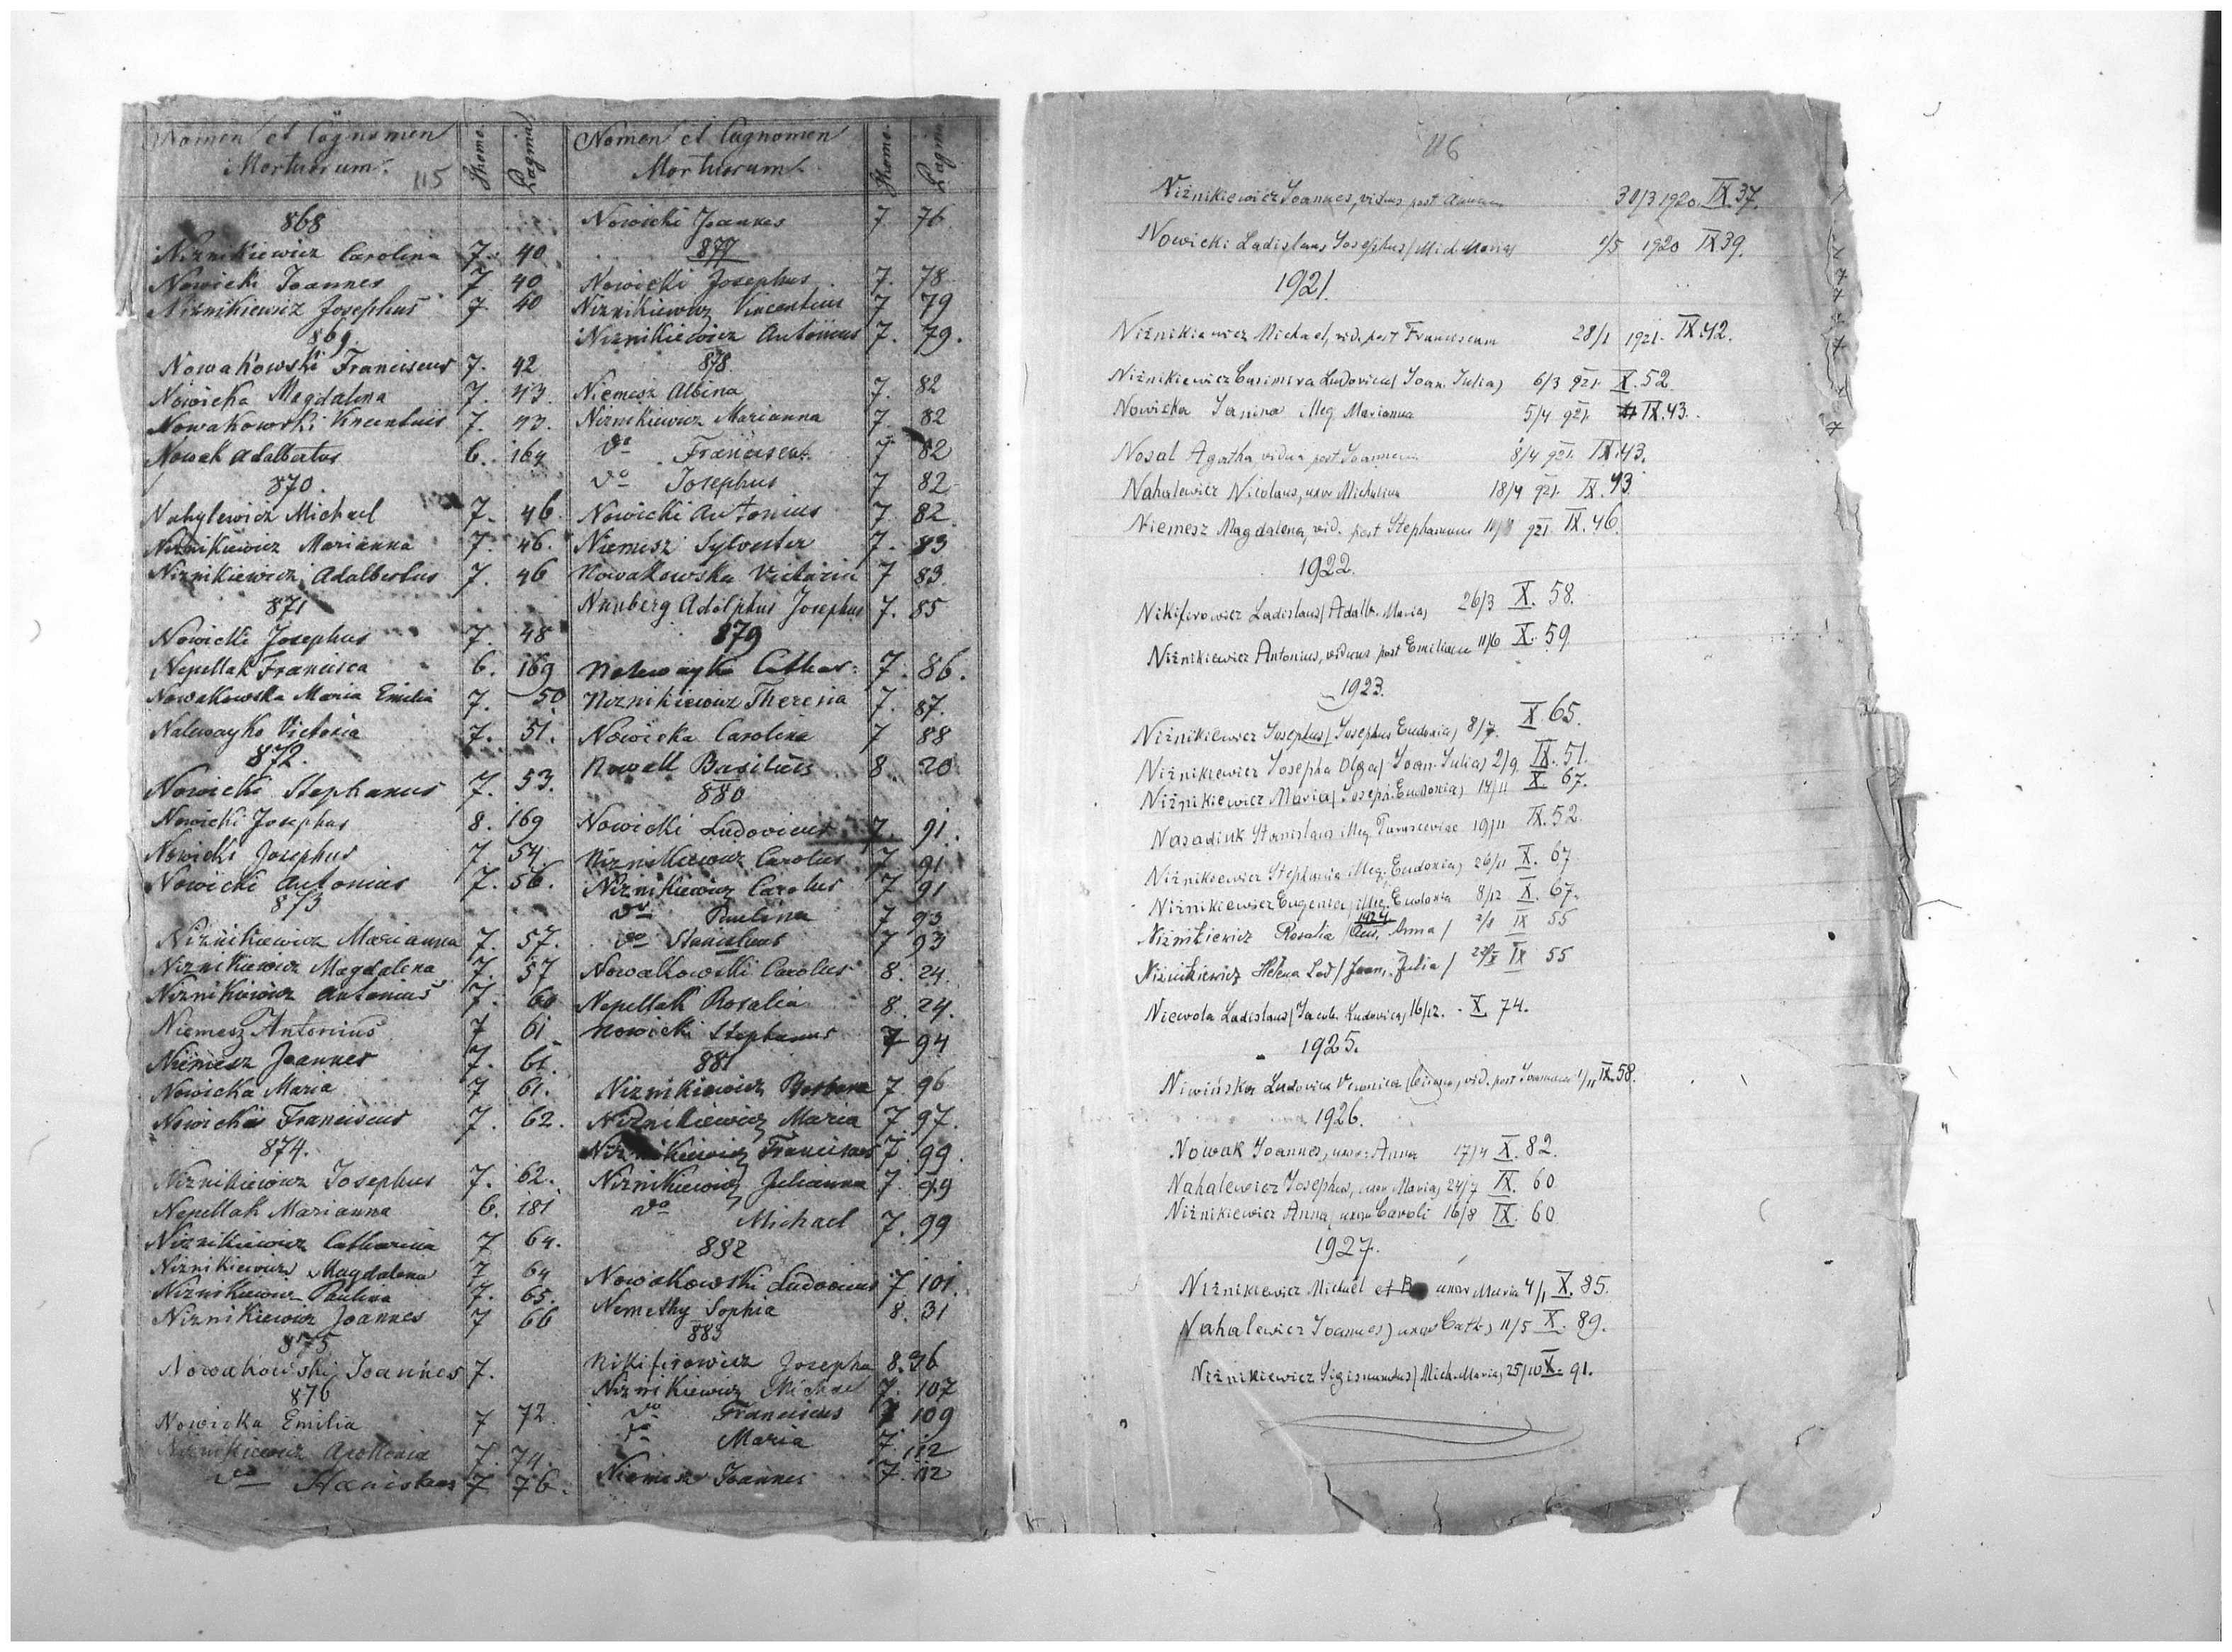 Nomen et Cognomen
Mortuorum. 115
Thome.
Pagina
868
Niznikiewicz Carolina 7. 40
Nowicki Joannes 7. 40
Niznikiewicz Josephus 7 40
869.
Nowakowski Franciscus 7. 42
Nowicka Magdalena 7. 43.
Nowakowski Vincentius 7. 43.
Nowak Adalbertus 6. 164
870.
Nahylewicz Michael 7. 46.
Niznikiewicz Marianna 7. 46.
Niznikiewicz Adalbertus 7. 46
871
Nowicki Josephus 7. 48
Nepellak Francisca 6. 169
Nowakowska Maria Emilia 7. 50.
Nalewayko Victoria 7. 51.
872.
Nowicki Stephanus 7. 53.
Nowicki Josephus 8. 169
Nowicki Josephus 7. 54.
Nowicki Antonius 7. 56.
873
Niznikiewicz Marianna 7. 57.
Niznikiewicz Magdalena 7. 57
Niznikiewicz Antonius 7. 60
Niemesz Antonius 7 61
Niemesz Joannes 7. 61.
Nowicka Maria 7 61.
Nowicki Franciscus 7. 62.
874.
Niznikiewicz Josephus 7. 62.
Nepellak Marianna 6. 181
Niznikiewicz Catharina 7 64.
Niznikiewicz Magdalena 7 64
Niznikiewicz Paulina 7. 65.
Niznikiewicz Joannes 7 66
875
Nowakowski Joannes 7.
876
Nowicka Emilia 7 72.
Niznikiewicz Apollonia 7. 74.
do Stanislaus 7 76.
Nomen et Cagnomen
Mortuorum.
Thome.
Pagina
Nowicki Joannes 7 76
877
Nowicki Josephus 7. 78
Niznikiewicz Vincentius 7 79
Niznikiewicz Antonius 7. 79.
878.
Niemesz Albina 7. 82
Niznikiewicz Marianna 7. 82
do Franciscus 7 82
do Josephus 7 82
Nowicki Antonius 7. 82
Niemisz Sylvester 7. 83
Nowakowska Victoria 7 83.
Nunberg Adolphus Josephus 7. 85
879
Nalewayko Cathar: 7. 86.
Niznikiewicz Theresia 7. 87.
Nowicka Carolina 7 88
Nowak Basilius 8. 20
880
Nowicki Ludovicus 7. 91.
Niznikiewicz Carolus 7 91
Niznikiewicz Carolus 7 91
do Paulina 7 93
do Stanislaus 7 93
Nowakowski Carolus 8. 24.
Nepellak Rosalia 8. 24.
Nowicki Stephanus 7 94
881
Niznikiewicz Barbara 7. 96
Niznikiewicz Maria 7. 97.
Niznikiewicz Franciscus 7. 99.
Niznikiewicz Julianna 7. 99
do Michael 7. 99
882
Nowakowski Ludovicus 7. 101.
Nemethy Sophia 8. 31
883
Nikiforowicz Josepha 8. 36
Niznikiewicz Michael 7. 107
do Franciscus 7 109
do Maria 7. 112
Niemesz Joannes 7. 112
116
Niżnikiewicz Joannes, viduus post Annam 30/3 1920. IX. 37.
Nowicki Ladislaus Josephus (Mich. Maria) 1/5 1920 IX 39.
1921.
Niżnikiewicz Michael, vid. post Franciscam 28/1 1921. IX. 42.
Niżnikiewicz Casimira Ludovica (Joan. Julia) 6/3 921. X. 52.
Nowicka Janina illeg. Marianna 5/4 921. IX. 43.
Nosal Agatha, vidua post Joannem 8/4 921. IX. 43.
Nahalewicz Nicolaus, uxor Michalina 18/4 921. IX. 43.
Niemesz Magdalena, vid. post Stephanum 921. IX. 46.
1922.
Nikiforowicz Ladislaus (Adalb. Maria) 26/3 X. 58.
Niżnikiewicz Antonius, viduus post Emiliam 11/6 X. 59.
1923.
Niżnikiewicz Josephus (Josephus Eudoxia) 8/7. X 65.
Niżnikiewicz Josepha Olga (Joan. Julia) 2/9. IX. 51.
Niżnikiewicz Maria (Joseph. Eudoxia) 14/11 X. 67.
Nasadiuk Stanislaus illeg. 19/11 IX. 52.
Niżnikiewicz Stephania illeg. Eudoxia) 26/11 X. 67
Niżnikiewicz Eugenia, illeg. Eudoxia 8/12 X. 67.
1924
Niżnikiewicz Rosalia Anna / 2/8 IX 55
Niżnikiewicz Helena Lad / Joan., Julia / IX 55
Niewola Ladislaus (Jacob. Ludovica) 16/12. X. 74.
1925.
Niwińska Ludovica Veronica vid. post Joannem 1/11 IX. 58.
1926.
Nowak Joannes, uxor Anna 17/4 X. 82.
Nahalewicz Josephus, uxor Maria) 24/7 IX. 60
Niżnikiewicz Anna, uxor Caroli 16/8 IX. 60
1927.
Niżnikiewicz Michael et B uxor Maria 4/1 X. 85.
Nahalewicz Joannes) uxor Cath.) 11/5 X. 89.
Niżnikiewicz Sigismundus (Mich. Maria) 25/10 X. 91.